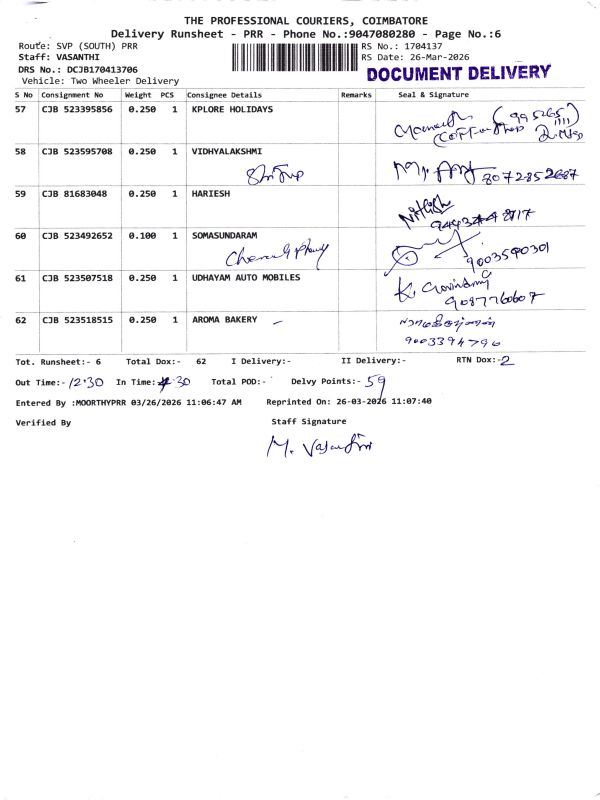 THE PROFESSIONAL COURIERS, COIMBATORE
Delivery Runsheet - PRR - Phone No.:9047080280 - Page No.:6
Route: SVP (SOUTH) PRR
RS No.: 1704137
Staff: VASANTHI
RS Date: 26-Mar-2026
DRS No.: DCJB170413706
DOCUMENT DELIVERY
Vehicle: Two Wheeler Delivery
S No Consignment No Weight PCS Consignee Details Remarks Seal & Signature
57 CJB 523395856 0.250 1 KPLORE HOLIDAYS
58 CJB 523595708 0.250 1 VIDHYALAKSHMI
8072852687
59 CJB 81683048 0.250 1 HARIESH
60 CJB 523492652 0.100 1 SOMASUNDARAM
9003590301
61 CJB 523507518 0.250 1 UDHAYAM AUTO MOBILES
K. Govindaraj
9087760607
62 CJB 523518515 0.250 1 AROMA BAKERY -
9003394796
Tot. Runsheet:- 6 Total Dox:- 62 I Delivery:- II Delivery:- RTN Dox:- 2
Out Time:- 12.30 In Time:- 4.30 Total POD:- Delvy Points:- 59
Entered By :MOORTHYPRR 03/26/2026 11:06:47 AM Reprinted On: 26-03-2026 11:07:40
Verified By Staff Signature
M. Vasanthi